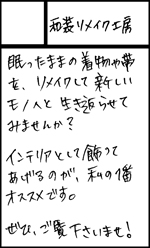 和装リメイク工房
眠ったままの着物や帯
を、リメイクして新しい
モノへと生き返らせて
みませんか？
インテリアとして飾って
あげるのが、私の1番
オススメです。
ぜひ、ご覧下さいませ！